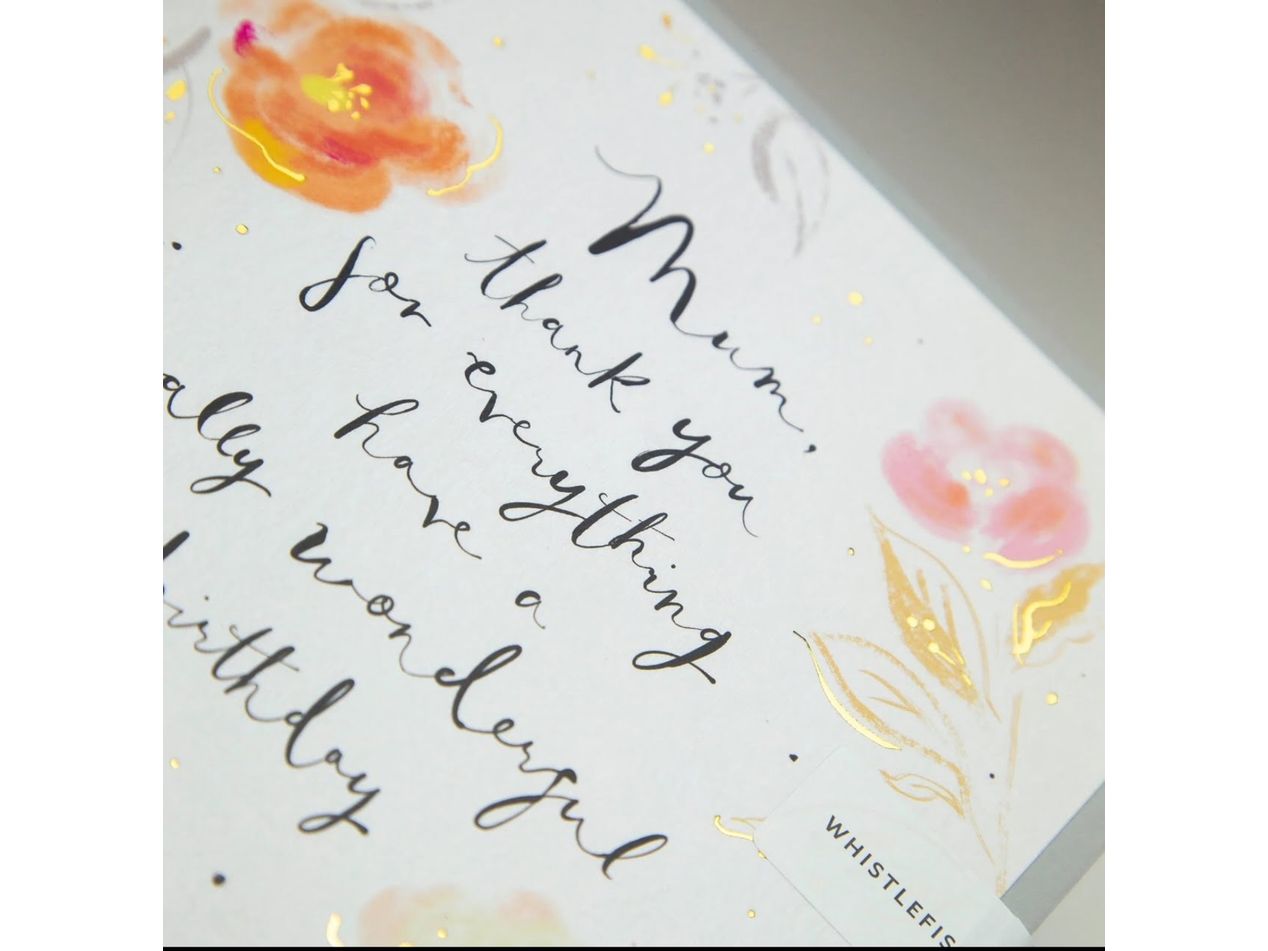 Mum,
thank you
for everything
have a
ally wonderful
birthday
WHISTLEFIS